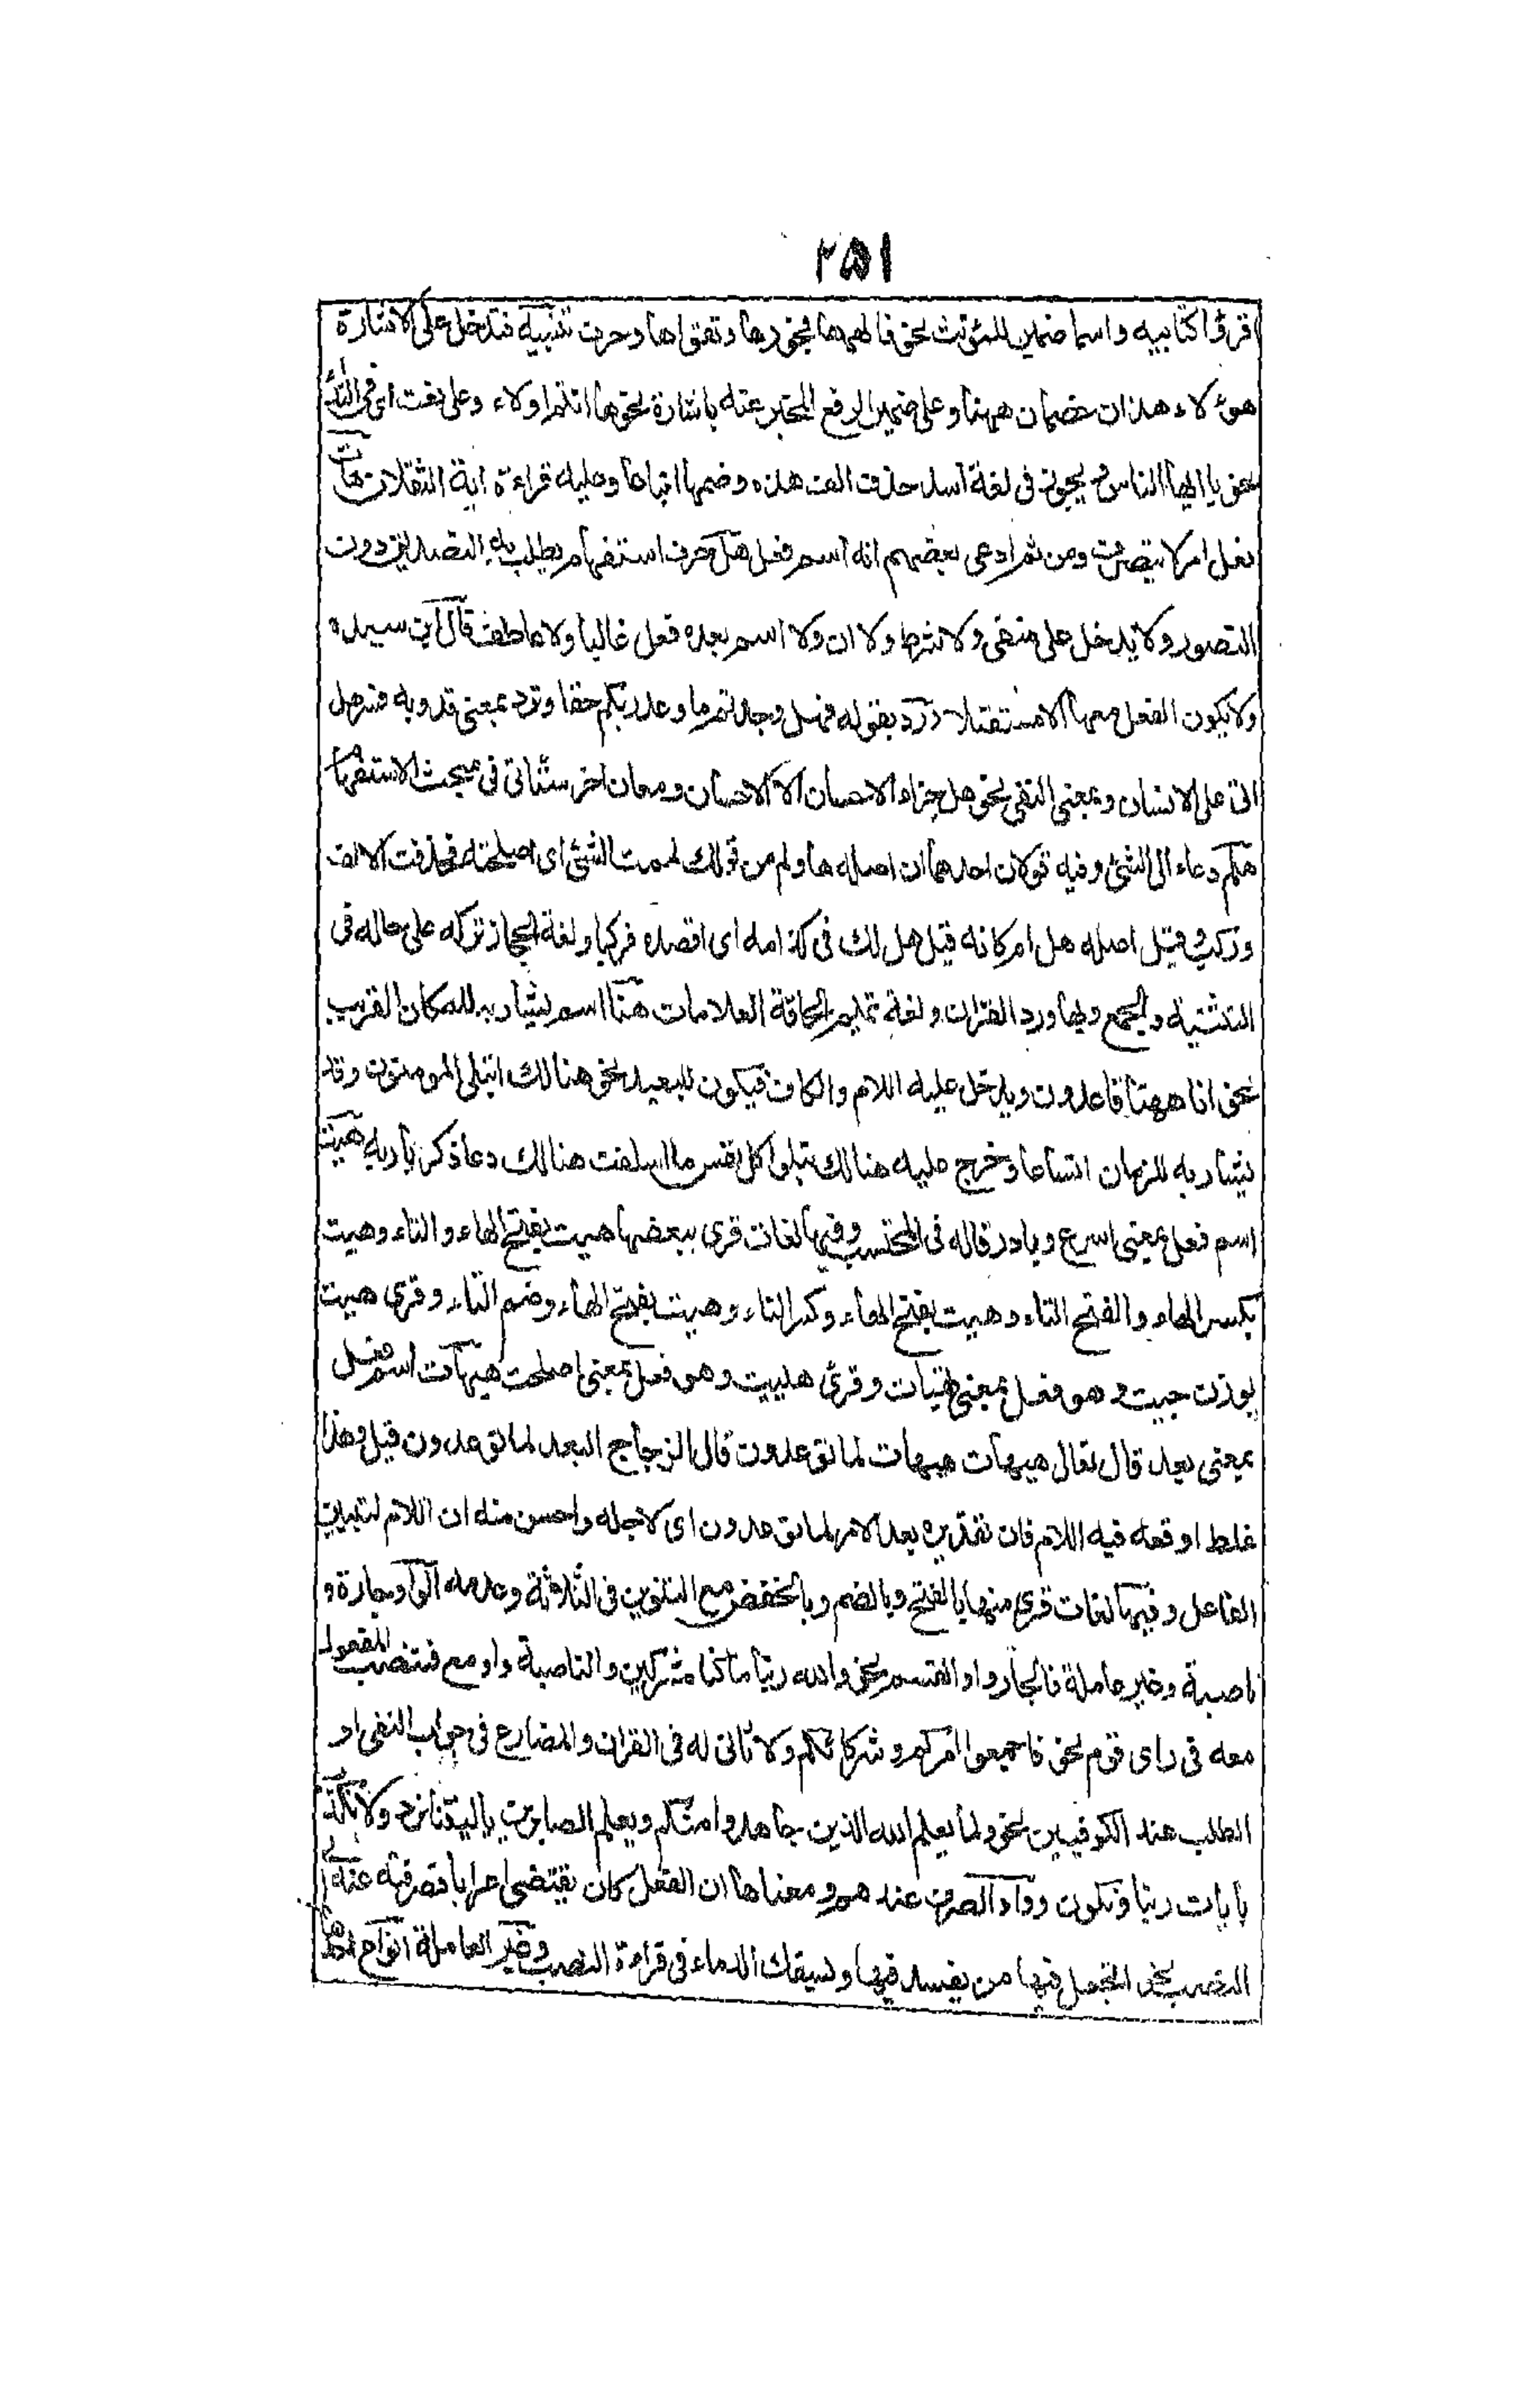 ٢٥١
اقرؤا كتابيه واسما ضمير للمؤنث نحو فالهمها فجورها وتقواها وحرف تنبيه فتدخل على الاشارة
هؤلاء هذان خصمان ههنا وعلى ضمير الرفع المخبر عنه باشارة نحو ها انتم اولاء وعلى نعت اى فى الندا
نحو يا ايها الناس ويجوز فى لغة اسد حذف الف هذه وضمها اتباعا وعليه قراءة ايه الثقلان هات
فعل امر لا يتصرف ومن ثم ادعى بعضهم انه اسم فعل هل حرف استفهام يطلب به التصديق دون
التصور ولا يدخل على منفى ولا شرط ولا ان ولا اسم بعده فعل غالبا ولا عاطف قال ابن سيده
ولا يكون الفعل معها الا مستقبلا ورد بقوله فهل وجدتم ما وعد ربكم حقا وترد بمعنى قد وبه فسر هل
اتى على الانسان وبمعنى النفى نحو هل جزاء الاحسان الا الاحسان ومعان اخر ستأتى فى مبحث الاستفهام
هلم دعاء الى الشئ وفيه قولان احدهما ان اصله ها ولم من قولك لممت الشئ اى اصلحته فحذفت الالف
وركب وقيل اصله هل ام كانه قيل هل لك فى كذا امه اى اقصده فركبا ولغة الحجاز تركه على حاله فى
التثنية والجمع وبها ورد القران ولغة تميم الحاقة العلامات هنا اسم يشار به للمكان القريب
نحو انا ههنا قاعدون ويدخل عليه اللام والكاف فيكون للبعيد نحو هنالك ابتلى المومنون وقد
يشار به للزمان اتساعا وخرج عليه هنالك تبلوا كل نفس ما اسلفت هنالك دعا ذكريا ربه هيت
اسم فعل بمعنى اسرع وبادر قاله فى المحتسب وفيها لغات قرى ببعضها هيت بفتح الهاء والتاء وهيت
بكسر الهاء والفتح التاء وهيت بفتح الهاء وكسر التاء وهيت بفتح الهاء وضم التاء وقرى هيت
بوزن جيت وهو فعل بمعنى تهيات وقرئ هيئت وهو فعل بمعنى اصلحت هيهات اسم فعل
بمعنى بعد قال تعالى هيهات هيهات لما توعدون قال الزجاج البعد لما توعدون قيل وهذا
غلط اوقعه فيه اللام فان تقديره بعد الامر لما توعدون اى لاجله واحسن منه ان اللام لتبيين
الفاعل وفيها لغات قرى منها بالفتح وبالضم وبالخفض مع التنوين فى الثلاثة وعدمه الواو جارة و
ناصبة وغير عاملة فالجار واو القسم نحو والله ربنا ما كنا مشركين والناصبة واو مع فتنصب المفعول
معه فى راى قوم نحو فاجمعوا امركم وشركائكم ولا ثانى له فى القران والمضارع فى جواب النفى او
الطلب عند الكوفيين نحو ولما يعلم الله الذين جاهدوا منكم ويعلم الصابرين ياليتنا نرد ولا نكذب
بايات ربنا ونكون وواو الصرف عندهم ومعناها ان الفعل كان يقتضى اعرابا فصرفته عنه الى
النصب نحو اتجعل فيها من يفسد فيها ويسفك الدماء فى قراءة النصب وغير العاملة انواع احدها